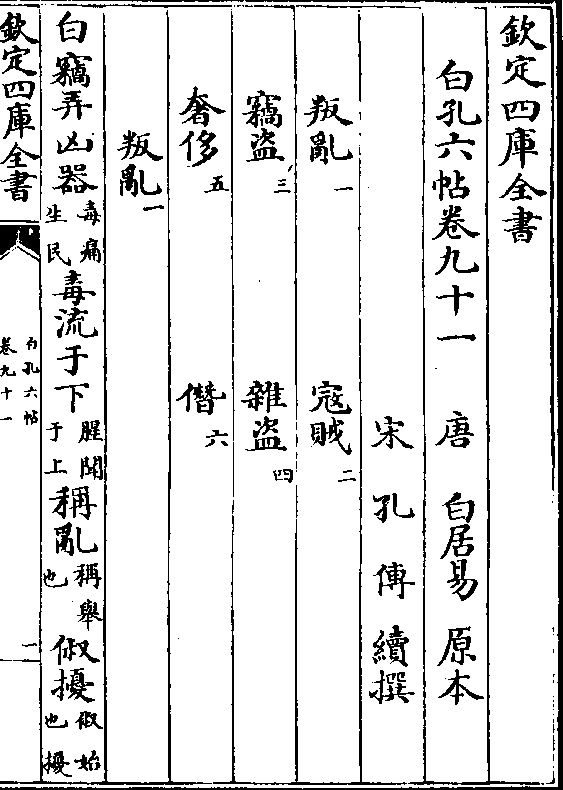 欽定四庫全書
白孔六帖卷九十一 唐 白居易 原本
宋 孔傳 續撰
叛亂一 寇賊二
竊盜三 雜盜四
奢侈五 僭六
叛亂一
白竊弄凶器毒痛生民毒流于下腥聞于上稱亂稱舉也俶擾俶始也擾
欽定四庫全書
白孔六帖
卷九十一
一